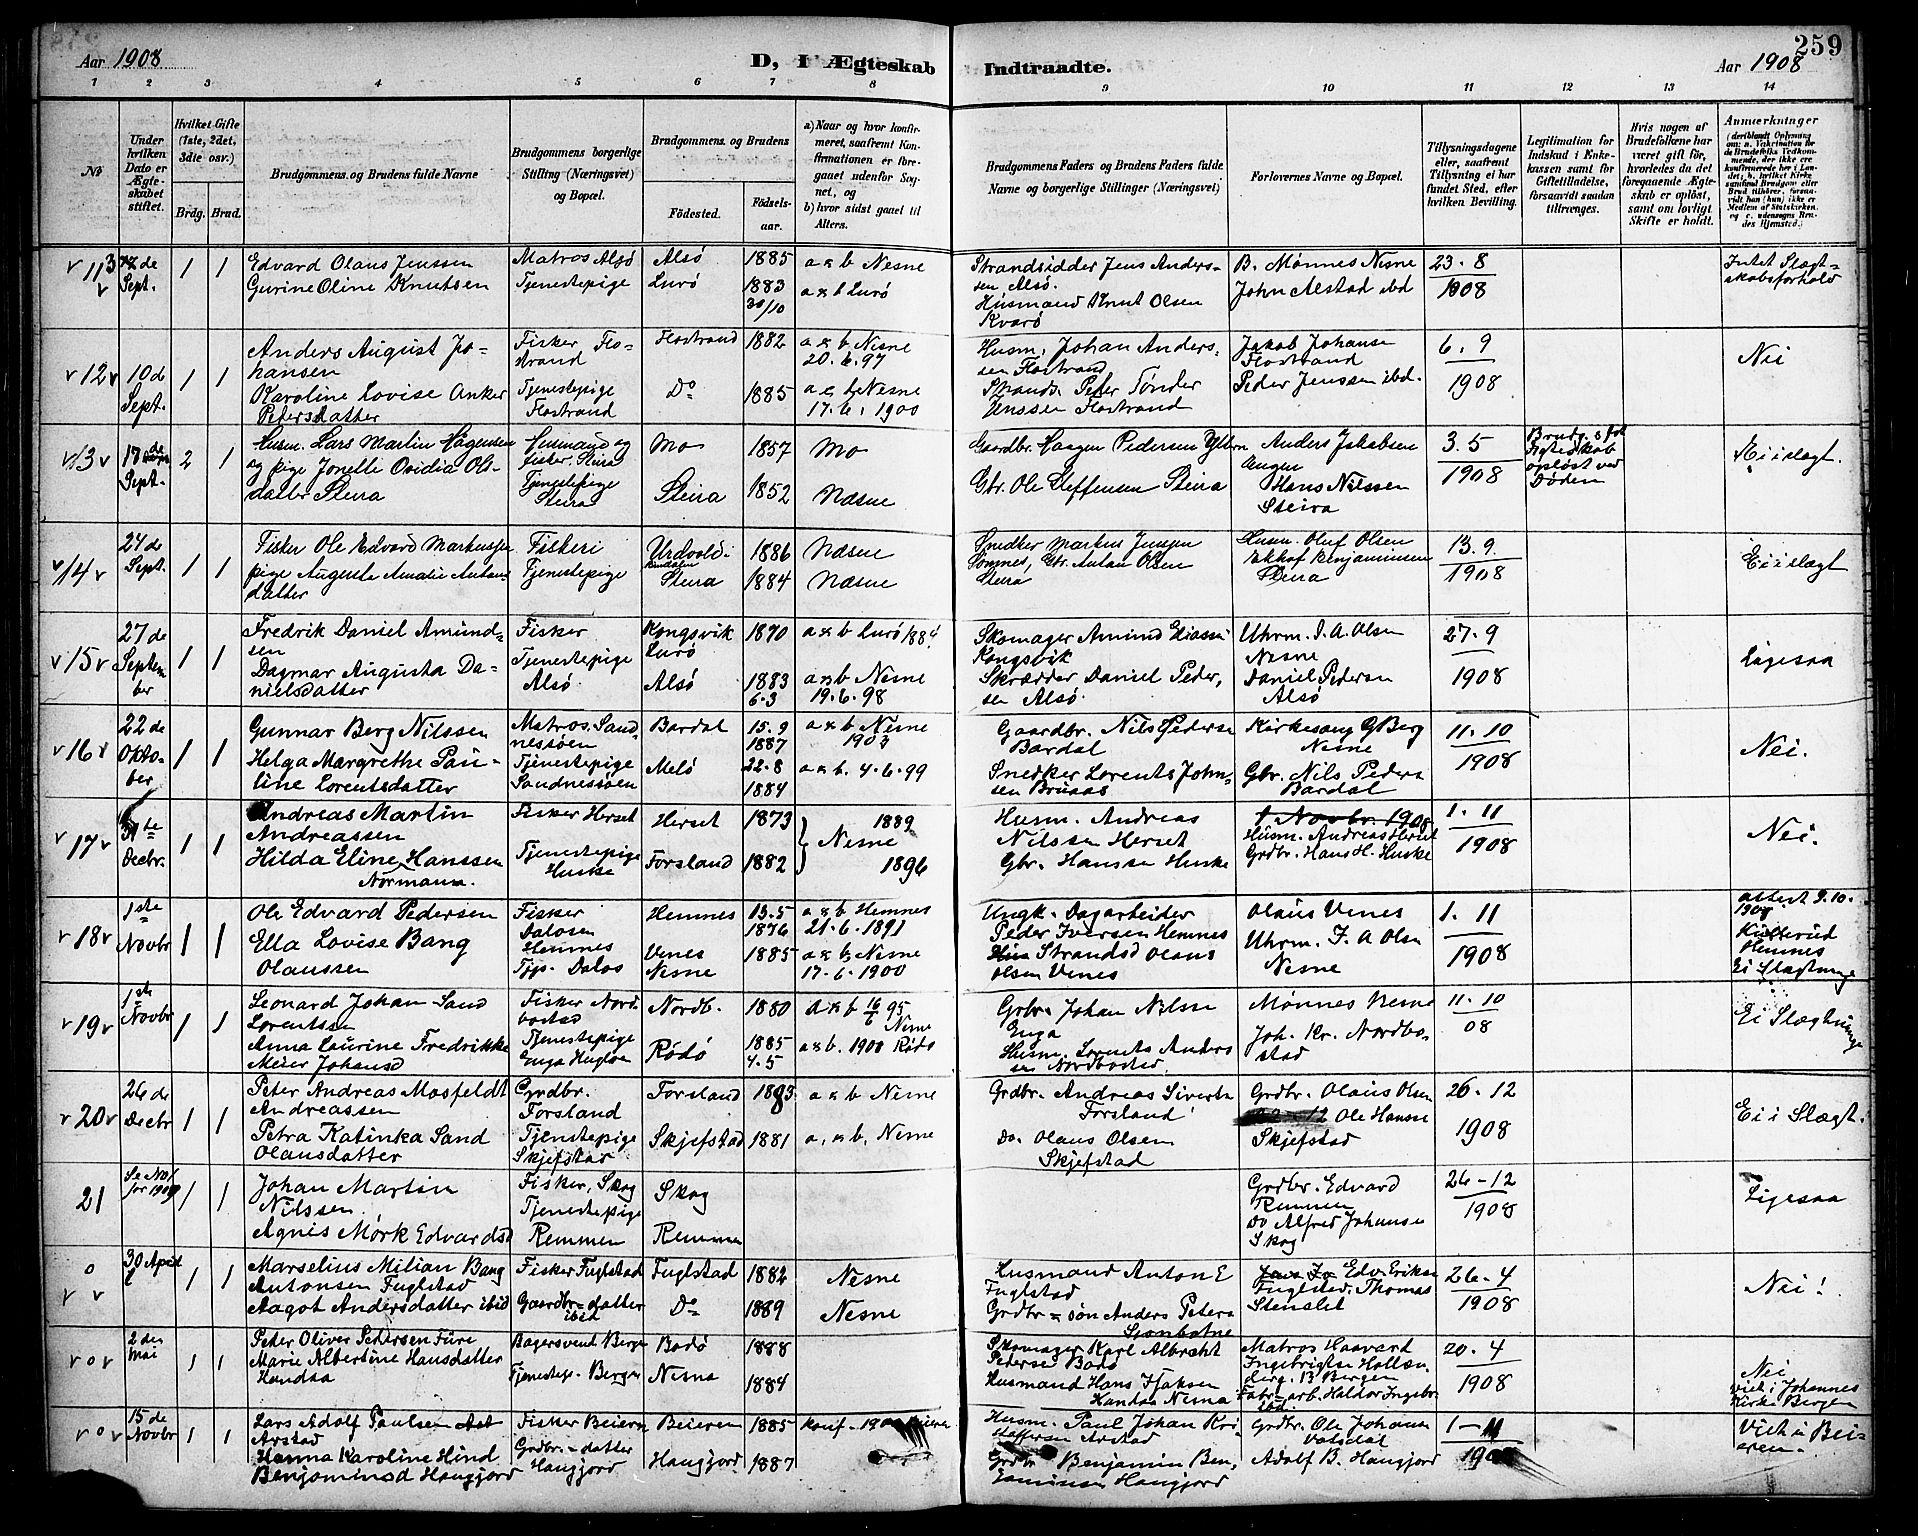 259
Aar 1908
D, I Ægteskab Indtraadte.
Aar 1908
1 2 3 4 5 6 7 8 9 10 11 12 13 14
No
Under hvilken Dato er Ægteskabet stiftet.
Hvilket Gifte (1ste, 2det, 3die osv.)
Brdg. Brud.
Brudgommens og Brudens fulde Navne
Brudgommens borgerlige Stilling (Næringsvei) og Bopæl.
Brudgommens og Brudens
Fødested. Fødselsaar.
a) Naar og hvor konfirmeret, saafremt Konfirmationen er foregaaet udenfor Sognet, og
b) hvor sidst gaaet til Alters.
Brudgommens Faders og Brudens Faders fulde Navne og borgerlige Stillinger (Næringsvei)
Forlovernes Navne og Bopæl.
Tillysningsdagene eller, saafremt Tillysning ei har fundet Sted, efter hvilken Bevilling.
Legitimation for Indskud i Enkekassen samt for Giftetilladelse, forsaavidt saadan tiltrænges.
Hvis nogen af Brudefolkene har været gift før, hvorledes da det foregaaende Ægteskab er opløst, samt om lovligt Skifte er holdt.
Anmærkninger
11 Sept. 1 1
Edvard Olaus Jenssen
Gurine Oline Knutsen
Matros Alsö
Tjenestepige
Alsö 1885 a & b Nesne
Lurö 1883 30/10 a & b Lurö
Strandsidder Jens Anderssen Alsö.
Husmand Knut Olsen
Kvarö
B. Mönnes Nesne
John Alstad ibd
23 . 8
1908
Intet Slægtskabsforhold
12 10 de Sept. 1 1
Anders August Johansen
Karoline Lovise Anker
Petersdatter
Fisker Flostrand
Tjenestepige
Flostrand
Flostrand 1882 a & b Nesne 20.6.97
Do 1885 a & b Nesne 17.6.1900
Husm. Johan Anderssen Flostrand
Strands. Peter Tönder
Jenssen Flostrand
Jakob Johanse
Flostrand
Peder Jenssen ibd.
6 . 9
1908
Nei
13 17 Sept. 2 1
Husm. Lars Martin Hågensen
og pige Jonelle Ovidia Olsdatter Steira
Husmand og
fisker. Steira
Tjenestepige
Steira
Mo 1857 Mo
Steira 1852 Næsne
Gaardbr. Haagen Pedersen
Gbr. Ole Steffensen Steira
Anders Jakobsen
Hans Nilssen
Steira
3.5
1908
opløst ved
Døden
Ei i slægt.
14 24 de Sept. 1 1
Fisker Ole Edvard Markussen
pige Augusta Amalie Antonsdatter
Fiskeri
Tjenestepige
1886 Næsne
Steira 1884 Næsne
Snedker Markus Jensen
Gbr. Anton Olsen
Steira
Husm. Oluf Olsen
Benjaminsen
Steira
13.9
1908
Ei i slægt
15 27 de September 1 1
Fredrik Daniel Amundsen
Dagmar Augusta Danielsdatter
Fisker
Tjenestepige
Alsö
Kongsvik
Lurö
1870 a & b Lurö 1884
Alsö 1883 6.3 a & b Nesne 19.6.98
Skomager Amund Eliassen
Kongsvik
Skrædder Daniel Pedersen Alsö.
Uhrm. J. A. Olsen
Nesne
Daniel Pedersen
Alsö
27.9
1908
Ligesaa
16 22 de Oktober 1 1
Gunnar Berg Nilssen
Helga Margrethe Pauline Lorentsdatter
Matros. Sandnessöen
Tjenestepige
Sandnessöen
Bardal 15.9 1887 a & b Nesne 1903
Melö 22.8 1884 a & b. 4.6.99
Gaardbr. Nils Pederse
Bardal
Snedker Lorents Johnsen Bruaas
Kirkesang G Berg
Nesne
Gbr. Nils Peders
Bardal
11.10
1908
Nei.
17 31te Decbr. 1 1
Andreas Martin
Andreassen
Hilda Eline Hanssen
Normann.
Fisker Herset
Tjenestepige
Huske
Herset 1873
Forsland 1882
1889
Nesne
1896
Husm. Andreas
Nilssen Herset
Gbr. Hansse Huske
1 Novbr. 1908
Husm. Andreas Herset
Grdbr. Hans H. Huske
1.11
1908
Nei.
18 1ste Novbr 1 1
Ole Edvard Pedersen
Ella Lovise Bang
Olaussen
Fisker
Dalosen
Hemnes
Tjp. Dalos
Hemnes 15.5 1876 a & b Hemnes 21.6.1891
Venes
Nesne
1885 a & b Nesne 17.6.1900
Ungk. Dagarbeider
Peder Iversen Hemnes
Strandsd Olaus
Olsen Venes
Olaus Venes
Uhrm. J. A Olsen
Nesne
1.11
1908
attest 9.10.
1908
Hemnes
19 1ste Novbr 1 1
Leonard Johan Sand
Lorentssen
Anna Laurine Fredrikke
Meier Johansd
Fisker Nordbostad
Tjenestepige
Enga Hugløen
Nordb. 1880 a & b 16/6 95 Nesne
Rödö 1885 4.5 a & b. 1900 Rödö
Grbr. Johan Nilsse
Enga
Husm. Lorents Andersen Nordbostad.
Mönnes Nesne
Joh. Kr. Nordbostad
11.10
08
20 26 de Decbr 1 1
Peter Andreas Mosfeldt
Andreassen
Petra Katinka Sand
Olausdatter
Grdbr.
Forsland
Tjenestepige
Skjefstad
Forsland 1883 a & b Nesne
Skjefstad 1881 a. & b. Nesne
Grdbr. Andreas Sivertse
Forsland
Do. Olaus Olsen
Skjefstad
Grdbr. Olaus Olsen
Ole Hansse
Skjefstad
26.12
1908
Ei i Slægt.
21 Se No 1 for 1909 1 1
Johan Martin
Nilssen
Agnis Mörk Edvardsd
Fisker, Skog
Tjenestepige
Remmen
Skog
Remmen
Grdbr. Edvard
Remmen
Do Alfred Johanse
Skog
26-12
1908
Ligesaa
0 30 April 1 1
Marselius Milian Bang
Antonsen Fuglstad
Aagot Andersdatter ibid
Fisker Fuglstad
Gaardbr=datter
ibid
Fuglstad 1882 Nesne
Do 1889 Nesne
Husmand Anton E
Fuglstad
Grdbr=søn Anders Peters
Sjonbotne
Edv. Eriksen
Fuglstad. Thomas
Stenslet
26.4
1908
Nei!
0 2 den Mai 1 1
Peder Oliver Pedersen Füre
Marie Albertine Hansdatter
Handaa
Bagersvend Bergen
Tjenestepi. Bergen
Bodö 1888
Nesna 1884
Skomager Karl Albrecht
Pederse Bodö
Husmand Hans Isaksen
Handaa Nesna
Matros Haavard
Ingebrigtse
Bergen
Fabr=arb. Haldor Ingebr.
ibd.
20.4
1908
Nei
viet i Johannes
Kirke Bergen
0 15 de Novbr 1 1
Lars Adolf Paulsen
Arstad
Hanna Karoline Hind
Benjaminsd Haugjord
Fisker Beiern
Grdbr=datter
Haugjord
Beieren 1885 konf.
Haugjord 1887
Husm. Paul Johan Kristoffersen Arstad
Grdbr Benjamin Benjaminsen Haugjord
Grdbr. Ole Johanse
Valsdal
Adolf B. Haugjord
1-11
1908
Viet i Beiaren.